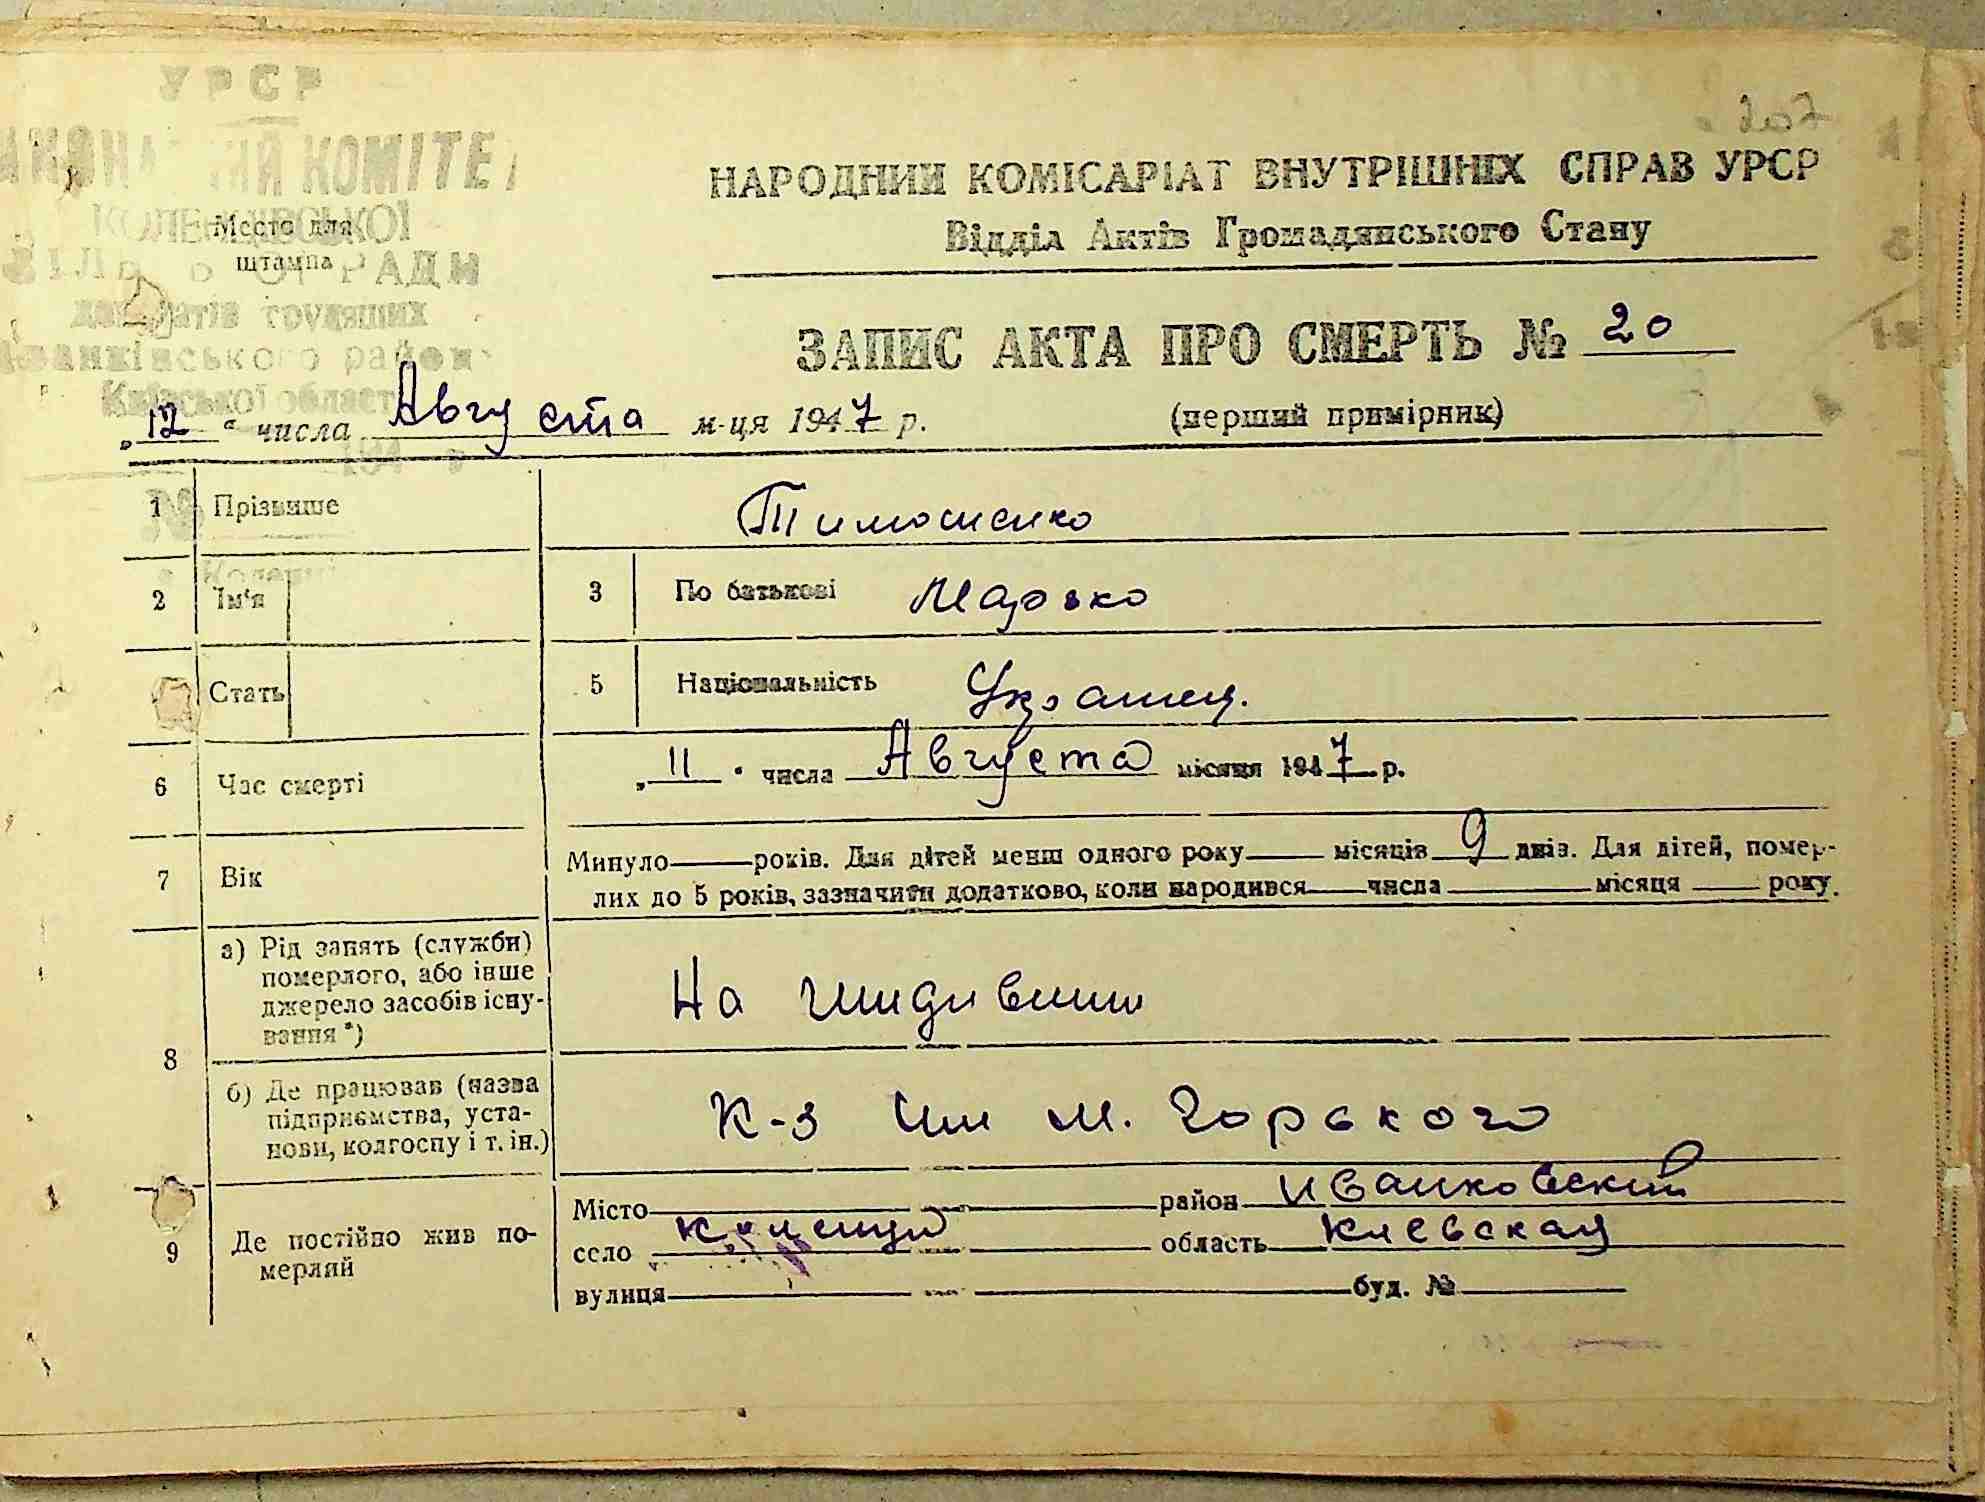 207
УРСР
КОМІТЕ
Место для
штампа
РАДИ
трудящих
Іванківського район
Київської област
194 р
№
НАРОДНИЙ КОМІСАРІАТ ВНУТРІШНІХ СПРАВ УРСР
Відділ Актів Громадянського Стану
ЗАПИС АКТА ПРО СМЕРТЬ № 20
„12“ числа Августа м-ця 1947 р.
(перший примірник)
1 Прізвище Тимошенко
2 Ім'я 3 По батькові Марько
Стать 5 Національність Украинец.
6 Час смерті „11“ числа Августа місяця 1947 р.
7 Вік Минуло — років. Для дітей менш одного року — місяців 9 днів. Для дітей, помер-
лих до 5 років, зазначити додатково, коли народився — числа — місяця — року.
8 а) Рід занять (служби)
померлого, або інше
джерело засобів існу-
вання*)
На иждивении
б) Де працював (назва
підприємства, уста-
нови, колгоспу і т. ін.)
К-з им М. Горького
9 Де постійно жив по-
мерлий
Місто — район Иванковский
село область Киевская
вулиця — буд. №